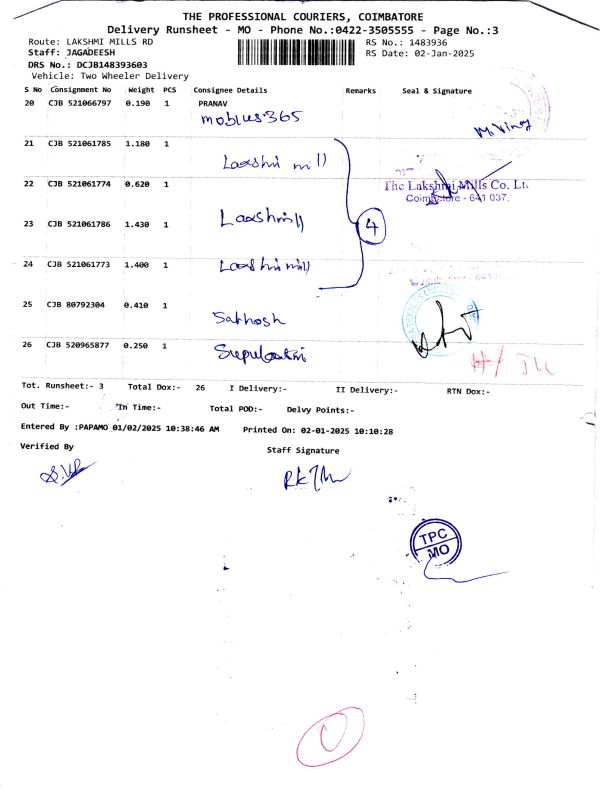 THE PROFESSIONAL COURIERS, COIMBATORE
Delivery Runsheet - MO - Phone No.:0422-3505555 - Page No.:3
Route: LAKSHMI MILLS RD RS No.: 1483936
Staff: JAGADEESH RS Date: 02-Jan-2025
DRS No.: DCJB148393603
Vehicle: Two Wheeler Delivery
S No Consignment No Weight PCS Consignee Details Remarks Seal & Signature
20 CJB 521066797 0.190 1 PRANAV
mobius365
M. Vinoy
21 CJB 521061785 1.180 1
Laxshmi mill
22 CJB 521061774 0.620 1
The Lakshmi Mills Co. Lt
Coimbatore - 641 037.
23 CJB 521061786 1.430 1 Laxshmill
4
24 CJB 521061773 1.400 1 Laxshmimill
25 CJB 80792304 0.410 1
Sathosh
26 CJB 520965877 0.250 1
Tot. Runsheet:- 3 Total Dox:- 26 I Delivery:- II Delivery:- RTN Dox:-
Out Time:- In Time:- Total POD:- Delvy Points:-
Entered By :PAPAMO 01/02/2025 10:38:46 AM Printed On: 02-01-2025 10:10:28
Verified By Staff Signature
TPC
MO